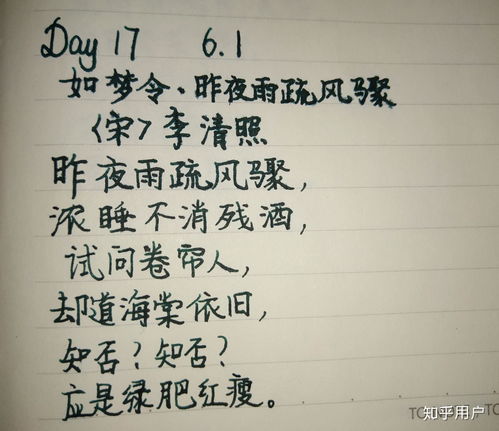 Day 17 6.1
如梦令、昨夜雨疏风骤
〈宋〉李清照
昨夜雨疏风骤，
浓睡不消残酒，
试问卷帘人，
却道海棠依旧，
知否？知否？
应是绿肥红瘦。
知乎用户